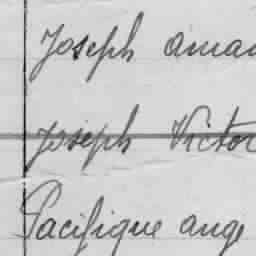 Joseph aman
Joseph Victor
Pacifique ange